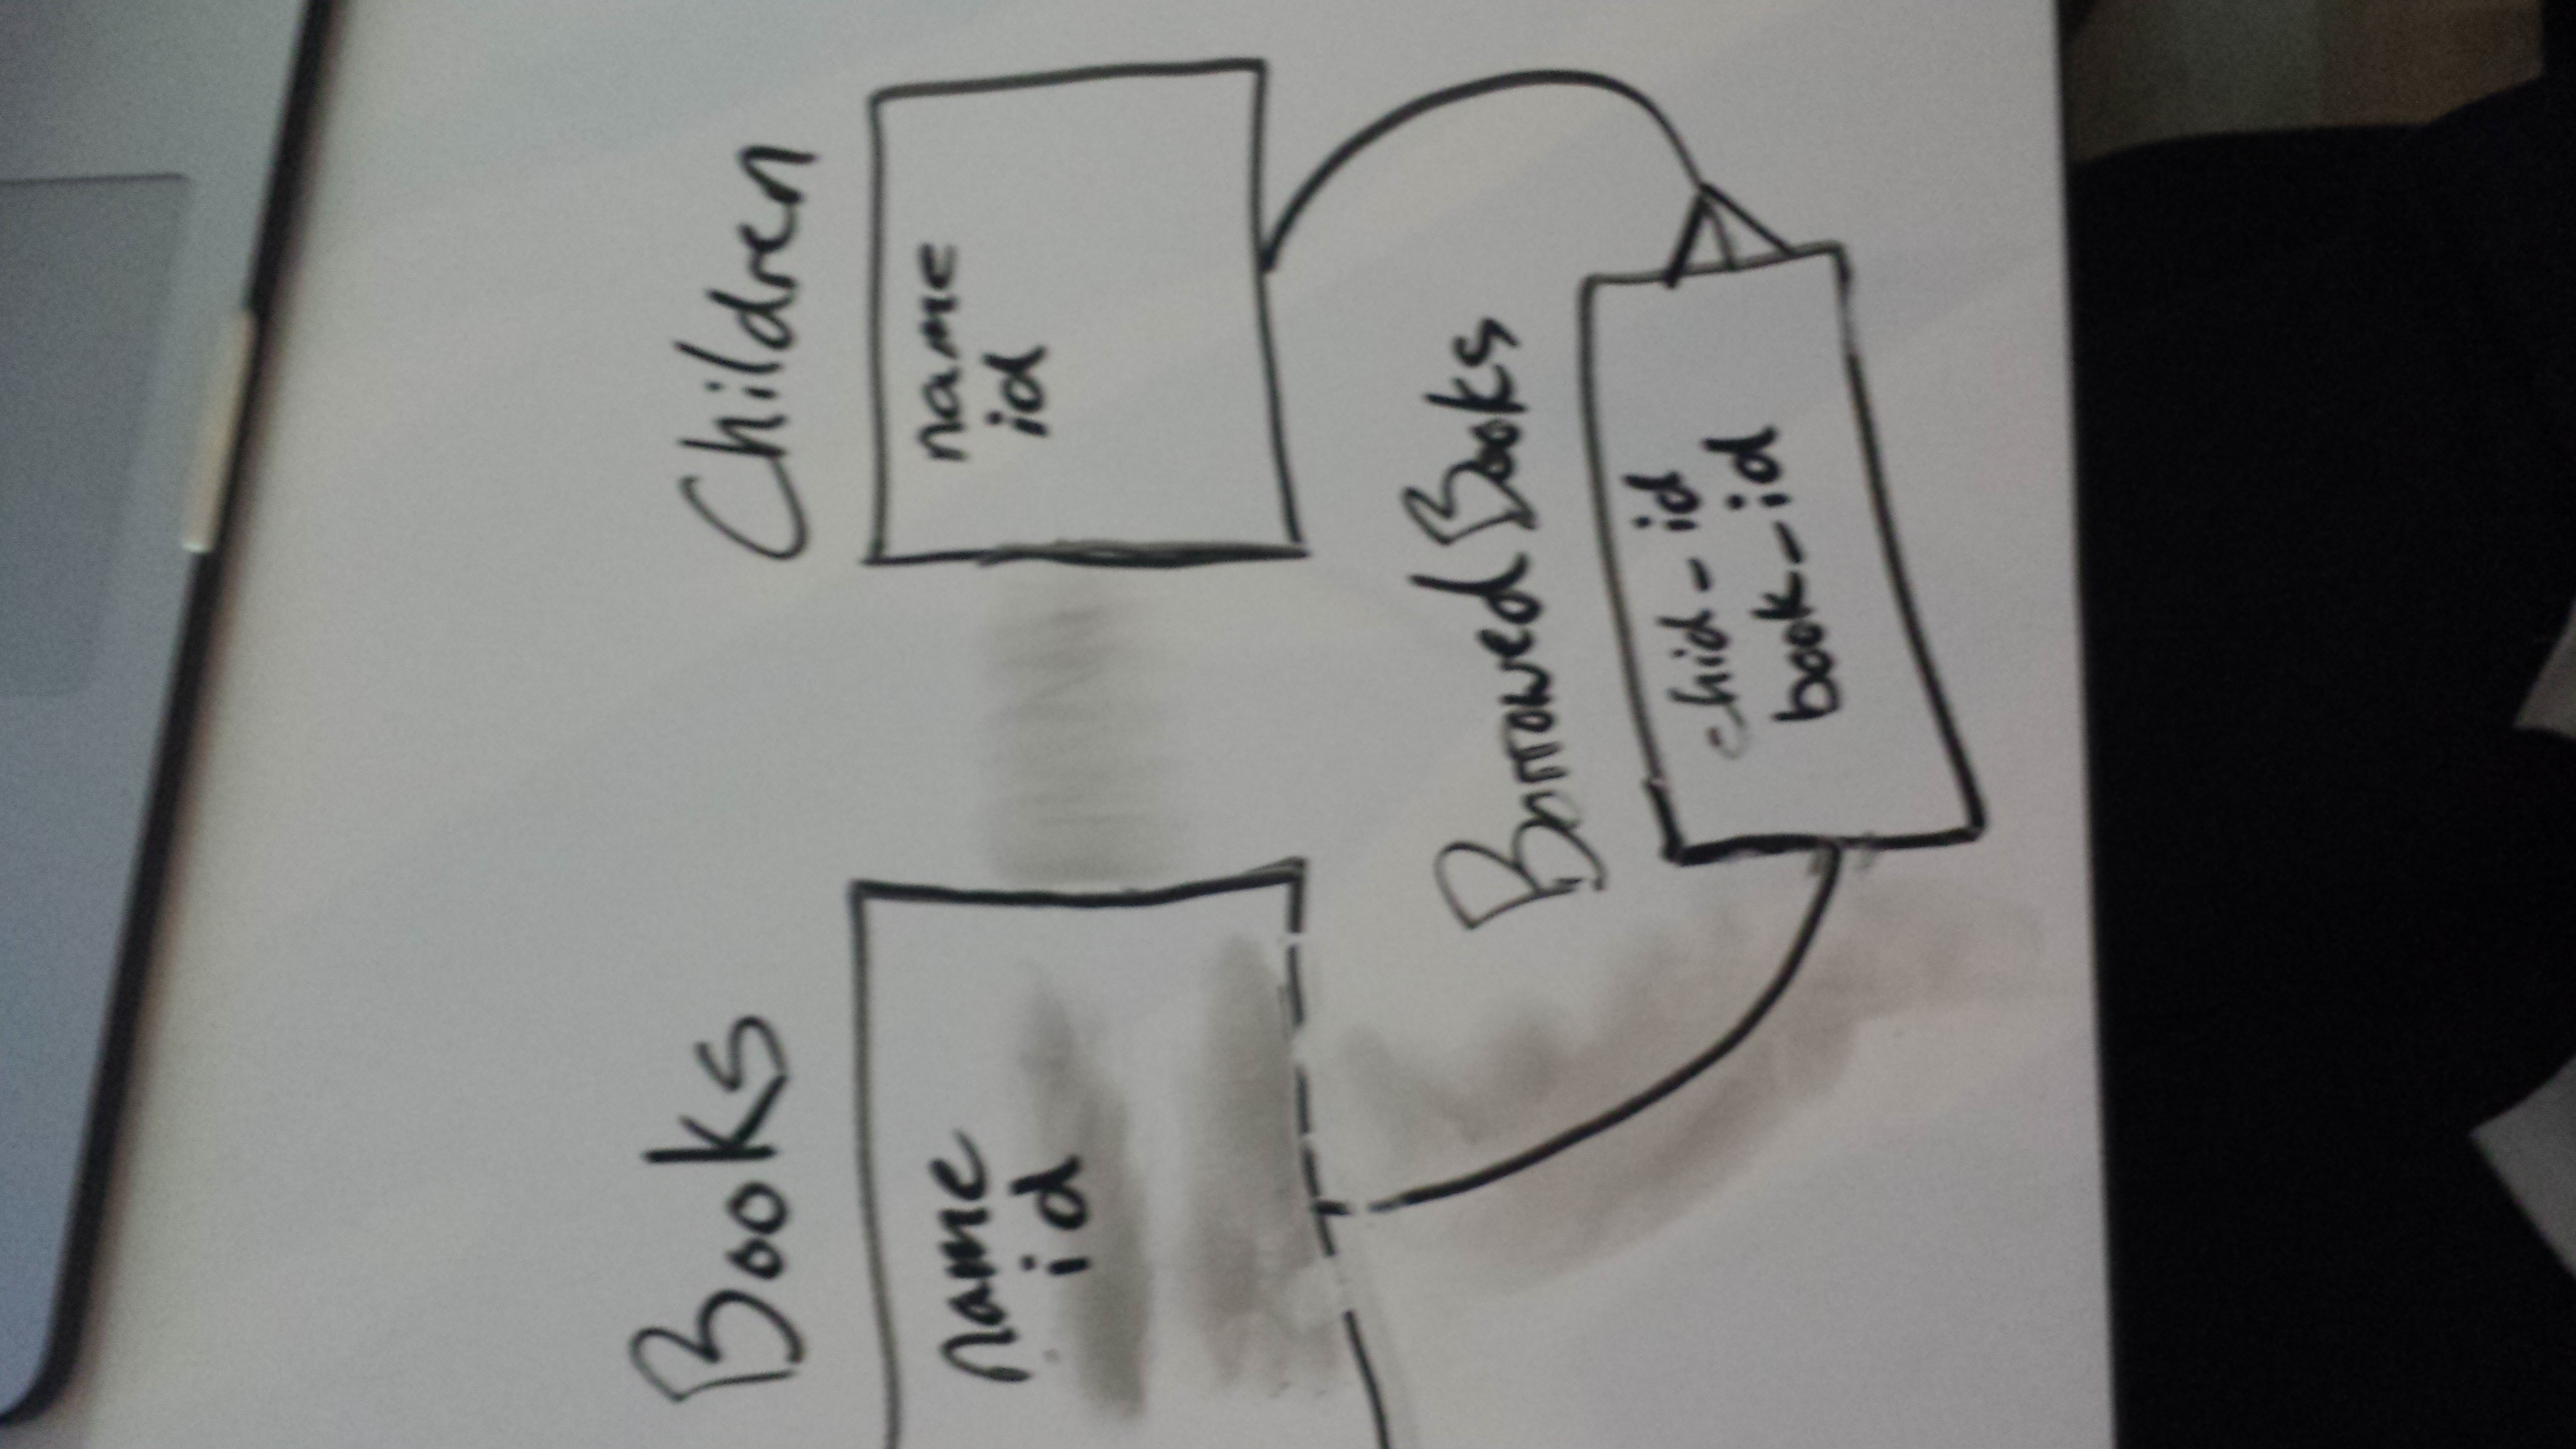 Books
name
id
Children
name
id
Borrowed Books
chid_id
book_id